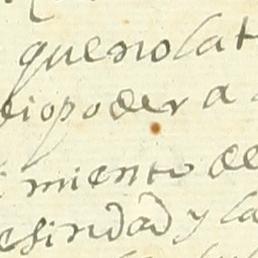 que no la t
dio poder a
miento de
esindad y la